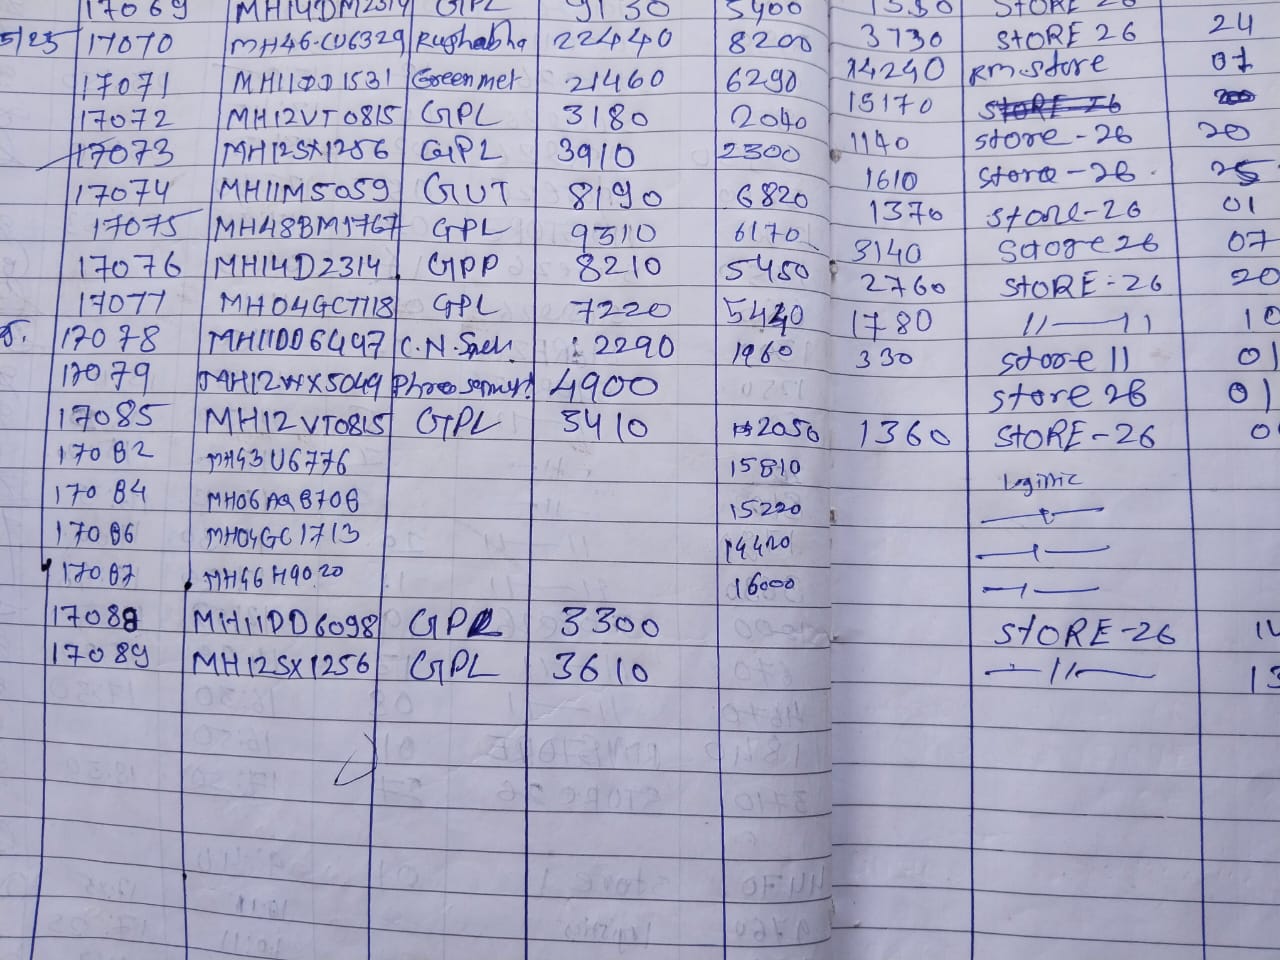 17069 MH14DM2314 GPL 9130 5400 STORE 26
5/25 17070 MH46-CU6329 22440 8200 3730 STORE 26 24
17071 MH11DD1531 Greenmet 21460 6290 14240 RM.store 07
17072 MH12VT0815 GPL 3180 2040 15170 STORE-26
17073 MH12SX1256 GPL 3910 2300 1140 store-26 20
17074 MH11M5059 GUT 8190 6820 1610 store-26. 25
17075 MH48BM1767 GPL 9310 6170 1370 store-26 01
17076 MH14D2314 GPP 8210 5450 3140 Store 26 07
17077 MH04GC7118 GPL 7220 5440 2760 STORE-26 20
17078 MH11DD6497 C.N. 2290 1960 1780 11—11 10
17079 4900 330 store 11 01
store 26 01
17085 MH12VT0815 GPL 3410 2050 1360 STORE-26
17082 MH43U6776 15810
17084 MH06AQ8708 15220
17086 MH04GC1713 14420
17087 MH46H9020 16000
17088 MH11DD6098 GPL 3300 STORE-26
17089 MH12SX1256 GPL 3610 —11— 13